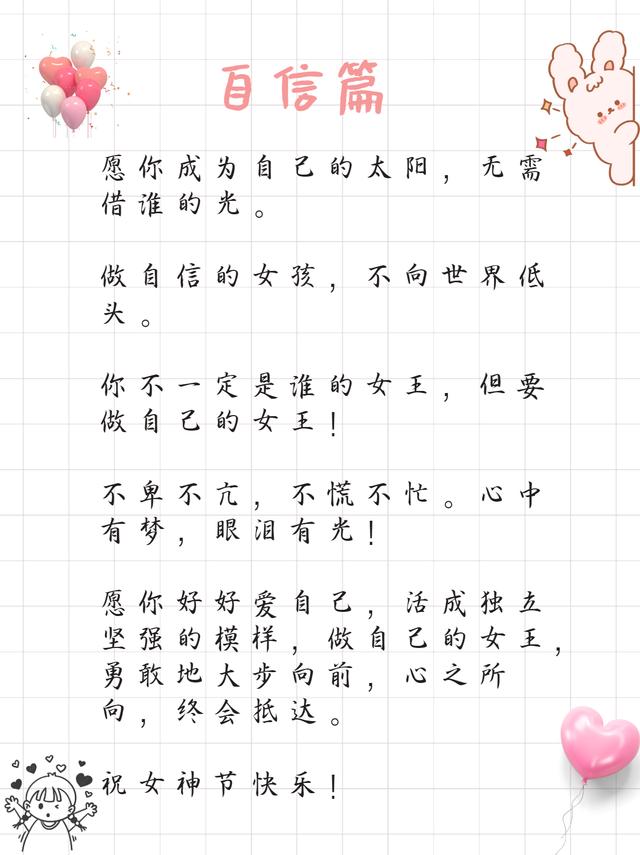 自信篇
愿你成为自己的太阳，无需
借谁的光。
做自信的女孩，不向世界低
头。
你不一定是谁的女王，但要
做自己的女王！
不卑不亢，不慌不忙。心中
有梦，眼泪有光！
愿你好好爱自己，活成独立
坚强的模样，做自己的女王，
勇敢地大步向前，心之所
向，终会抵达。
祝女神节快乐！